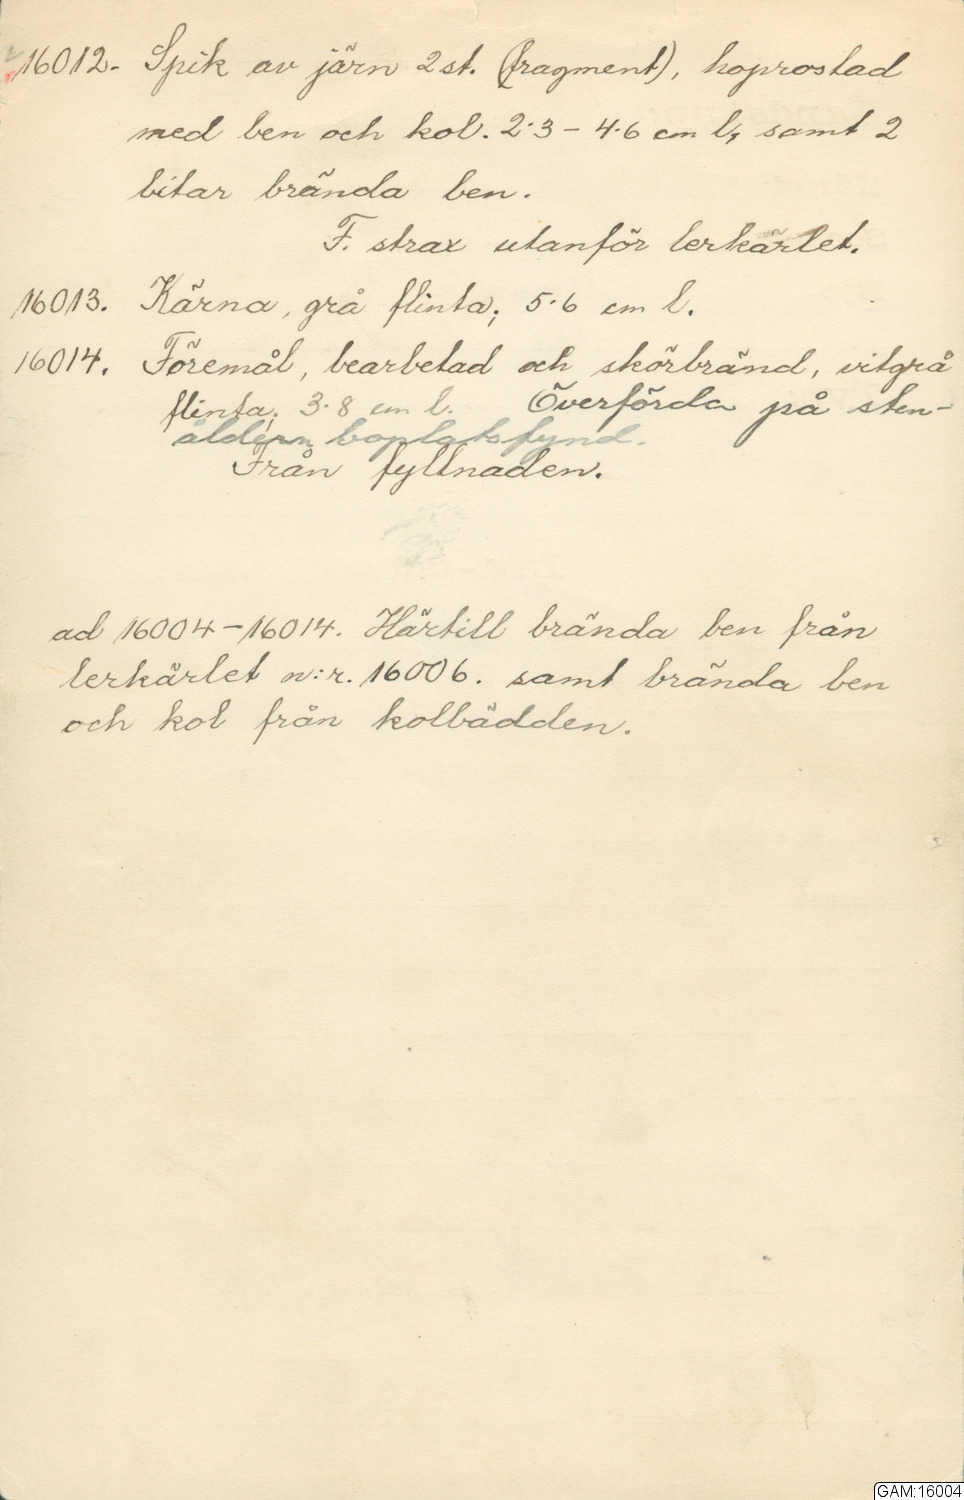 16012. Spik av järn 2 st. (fragment), hoprostad
med ben och kol. 2·3 – 4·6 cm l, samt 2
bitar brända ben.
F. strax utanför lerkärlet.
16013. Kärna, grå flinta; 5·6 cm l.
16014. Föremål, bearbetad och skörbränd, vitgrå
flinta; 3·8 cm l. Överförda på sten-
åldern boplatsfynd.
Från fyllnaden.
ad 16004–16014. Härtill brända ben från
lerkärlet n:r. 16006. samt brända ben
och kol från kolbädden.
GAM:16004